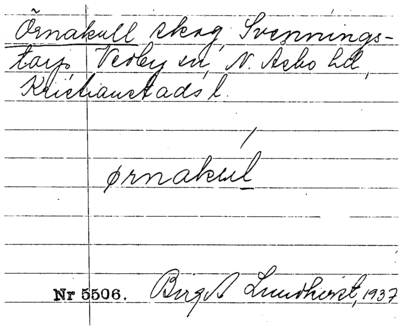 Örnakull skog Svennings-
tarp Vedby sn, N. Åsbo hd,
Kristianstads l.
ørnakul
Nr 5506. Birgit Lundkvist, 1937